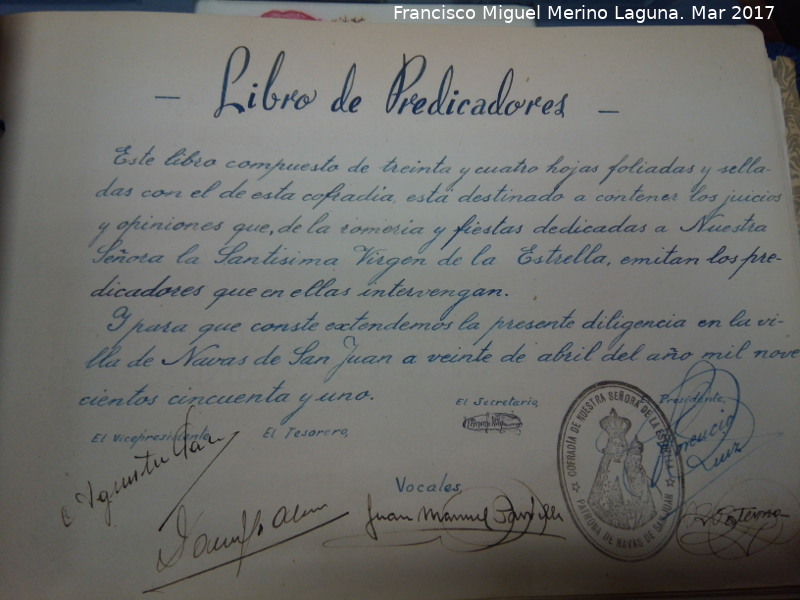 Francisco Miguel Merino Laguna. Mar 2017
- Libro de Predicadores -
Este libro compuesto de treinta y cuatro hojas foliadas y sella-
das con el de esta cofradia, está destinado a contener los juicios
y opiniones que, de la romeria y fiestas dedicadas a Nuestra
Señora la Santisima Virgen de la Estrella, emitan los pre-
dicadores que en ellas intervengan.
Y para que conste extendemos la presente diligencia en la vi-
lla de Navas de San Juan a veinte de abril del año mil nove
cientos cincuenta y uno.
El Vicepresidente, El Tesorero, El Secretario, Presidente,
Florencio
Ruiz
Vocales,
Juan Manuel
COFRADÍA DE NUESTRA SEÑORA DE LA ESTRELLA
PATRONA DE NAVAS DE SAN JUAN